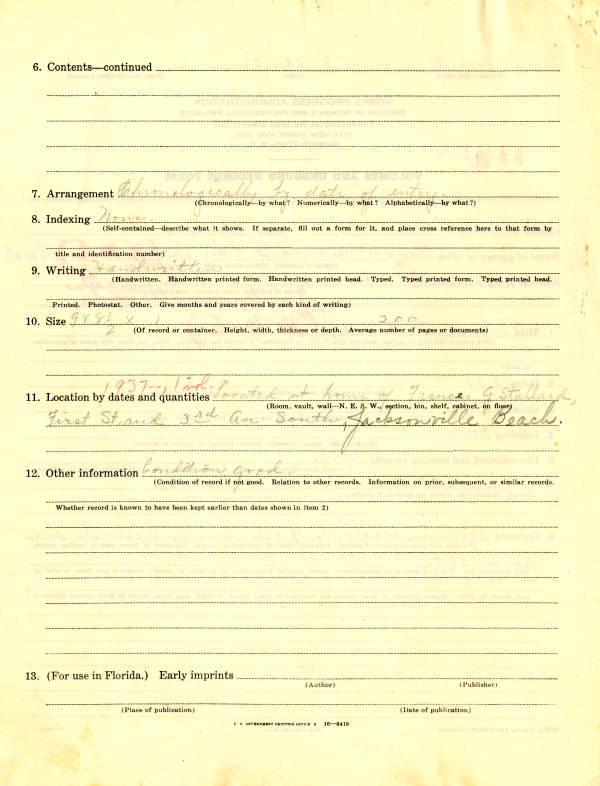 6. Contents—continued
7. Arrangement Chronologically by date of entry.
(Chronologically—by what? Numerically—by what? Alphabetically—by what?)
8. Indexing None.
(Self-contained—describe what it shows. If separate, fill out a form for it, and place cross reference here to that form by
title and identification number)
9. Writing Handwritten
(Handwritten. Handwritten printed form. Handwritten printed head. Typed. Typed printed form. Typed printed head.
Printed. Photostat. Other. Give months and years covered by each kind of writing)
10. Size 9 x 8½ x 1 200
(Of record or container. Height, width, thickness or depth. Average number of pages or documents)
1937—, 1 vol.
11. Location by dates and quantities Located at home of Frances G Stallard,
(Room, vault, wall—N. E. S. W., section, bin, shelf, cabinet, on floor)
First St and 3rd Ave South, Jacksonville Beach.
12. Other information Condition good.
(Condition of record if not good. Relation to other records. Information on prior, subsequent, or similar records.
Whether record is known to have been kept earlier than dates shown in item 2)
13. (For use in Florida.) Early imprints
(Author) (Publisher)
(Place of publication) (Date of publication)
U. S. GOVERNMENT PRINTING OFFICE 16—6419